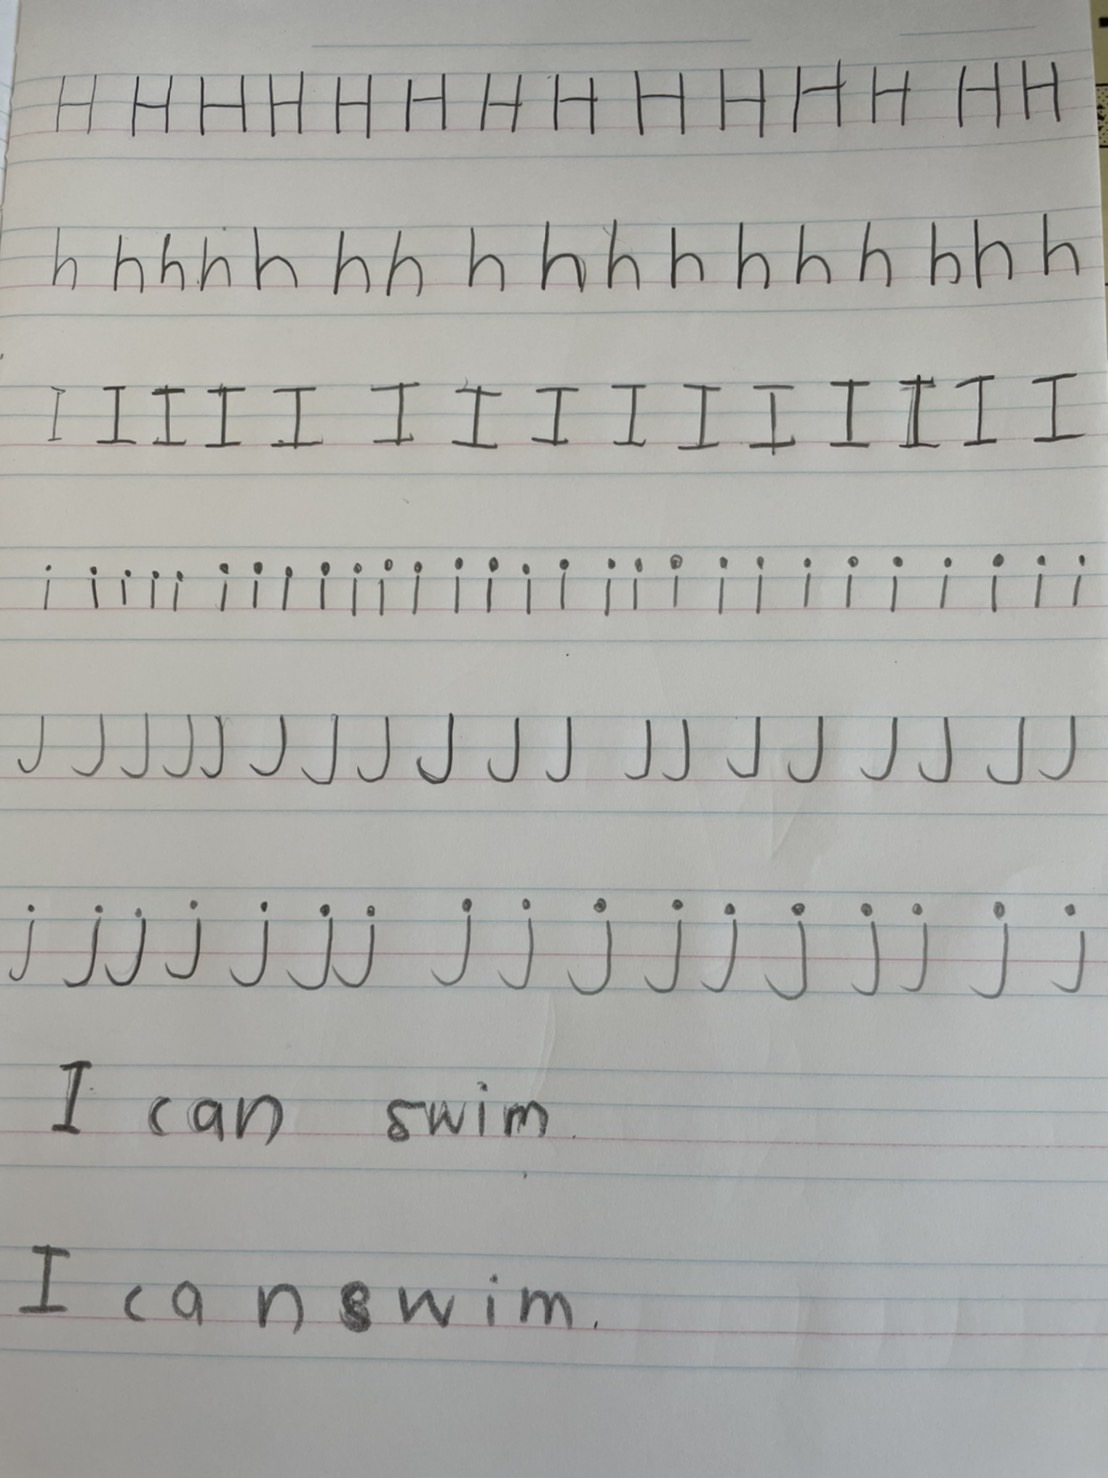 H H H H H H H H H H H H H H
h h h h h h h h h h h h h h h h h
I I I I I I I I I I I I I I I
i i i i i i i i i i i i i i i i i i i i i i i i i i i i
J J J J J J J J J J J J J J J J J J J
j j j j j j j j j j j j j j j j j
I can swim.
I can swim.